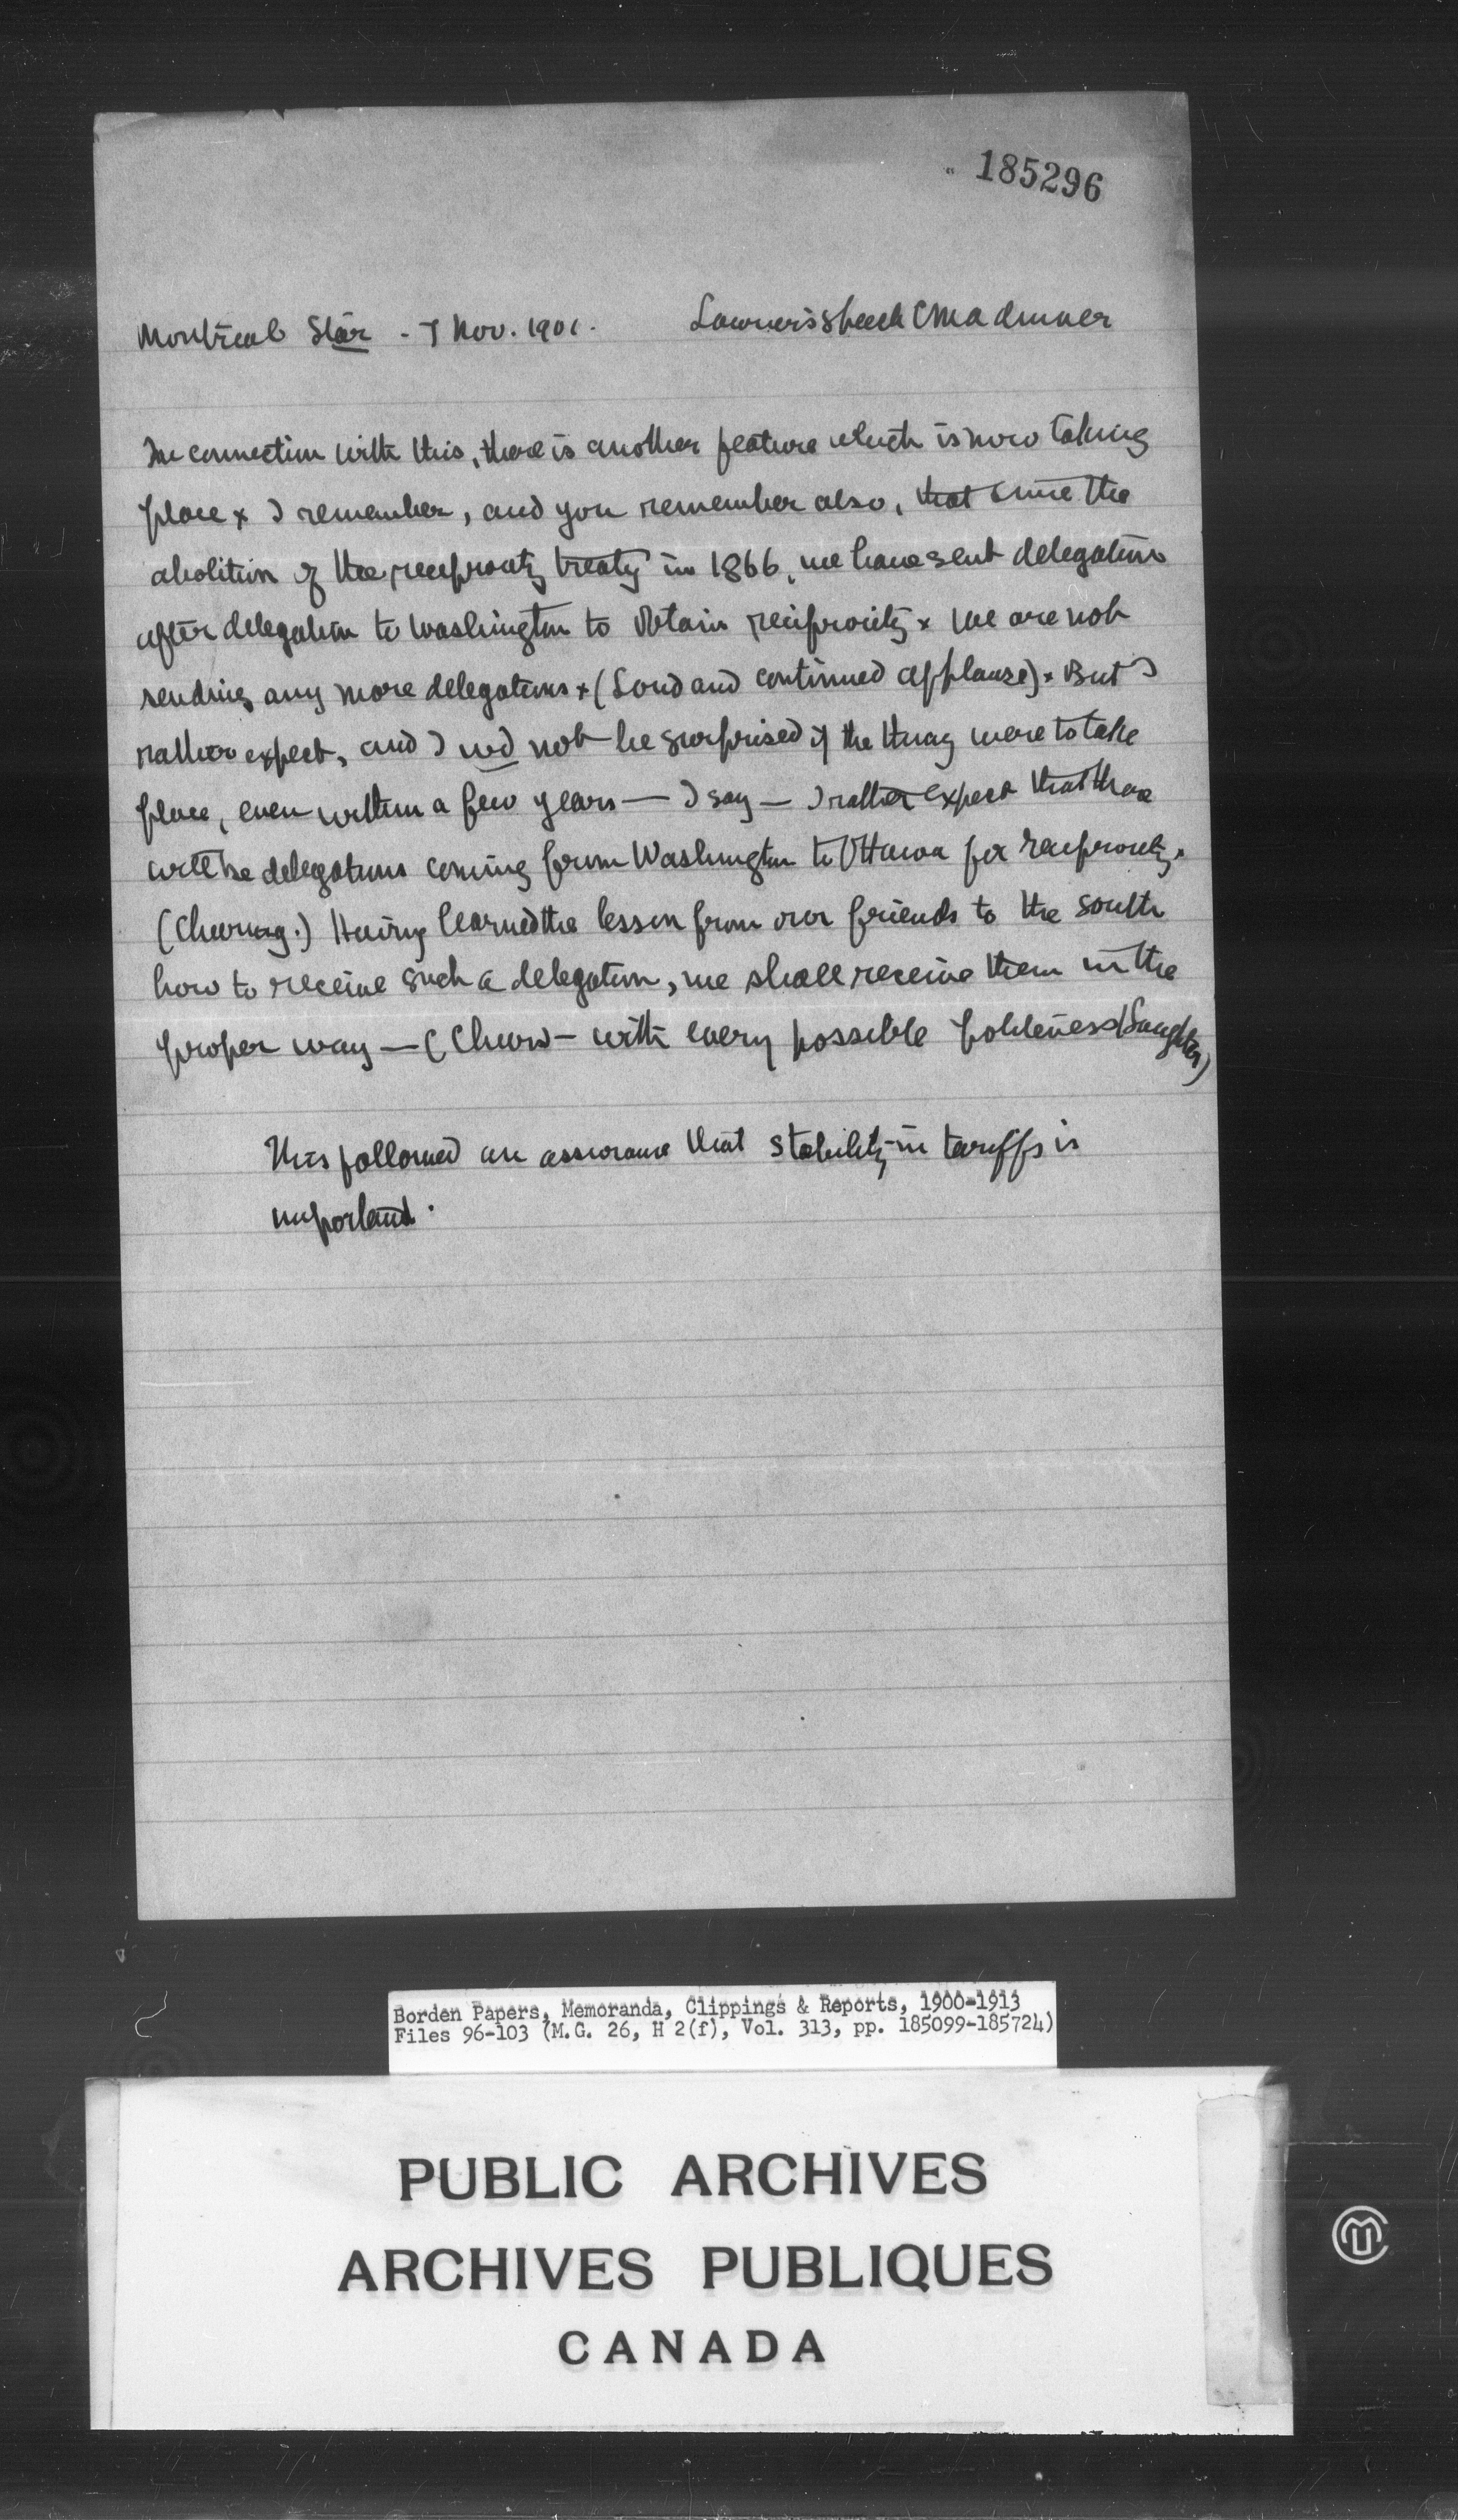 185296
Montreal Star - 7 Nov. 1901. Laurier's speech CMA dinner
In connection with this, there is another feature which is now taking
place x I remember, and you remember also, that since the
abolition of the reciprocity treaty in 1866, we have sent delegation
after delegation to Washington to obtain reciprocity x We are not
sending any more delegations x (Loud and continued applause) x But I
rather expect, and I wd not be surprised if the thing were to take
place, even within a few years — I say — I rather expect that there
will be delegations coming from Washington to Ottawa for reciprocity.
(Cheering.) Having learned the lesson from our friends to the south
how to receive such a delegation, we shall receive them in the
proper way — (Cheers — with every possible politeness (Laughter)
This followed an assurance that stability in tariffs is
important.
Borden Papers, Memoranda, Clippings & Reports, 1900-1913
Files 96-103 (M.G. 26, H 2(f), Vol. 313, pp. 185099-185724)
PUBLIC ARCHIVES
ARCHIVES PUBLIQUES
CANADA